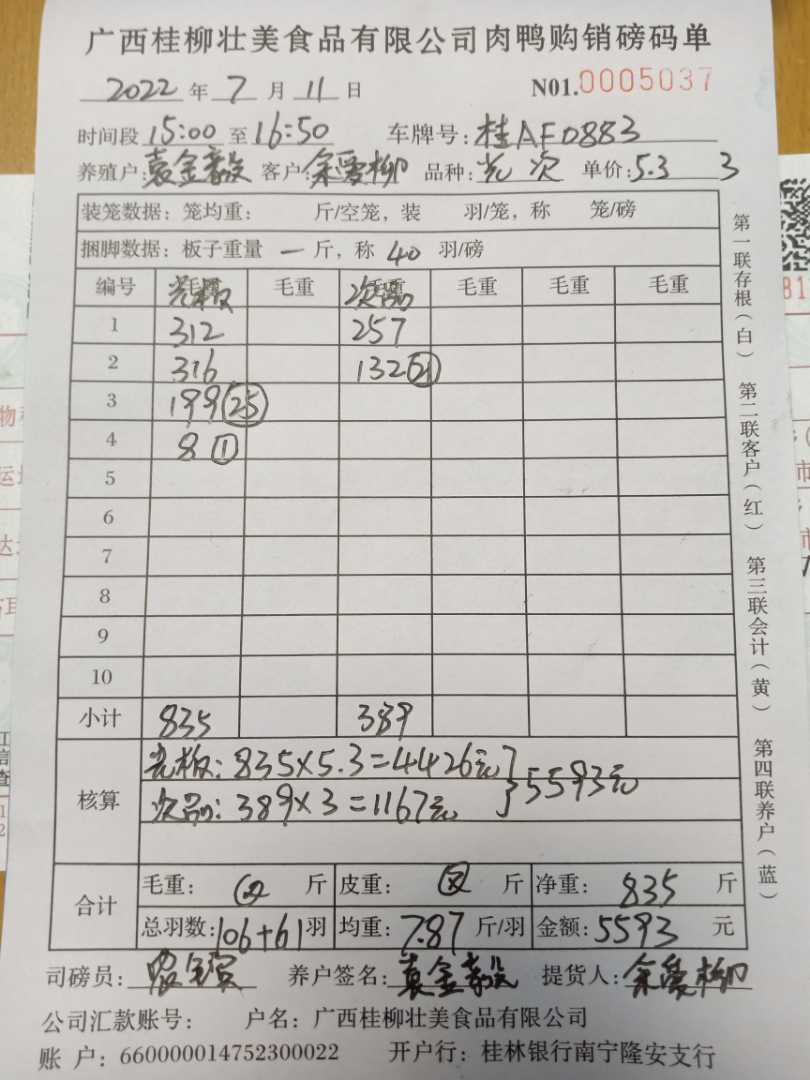 广西桂柳壮美食品有限公司肉鸭购销磅码单
2022年7月11日 N01.0005037
时间段15:00至16:50 车牌号:桂AF0883
养殖户:袁金毅 客户:余爱柳 品种:光 次 单价:5.3 3
装笼数据:笼均重: 斤/空笼,装 羽/笼,称 笼/磅
捆脚数据:板子重量 一 斤,称 40 羽/磅
编号 光板 毛重 次品 毛重 毛重 毛重
1 312 257
2 316 132 21
3 199 25
4 8 1
5
6
7
8
9
10
小计 835 389
核算 光板:835×5.3=4426元
次品:389×3=1167元 } 5593元
合计 毛重: 斤 皮重: 斤 净重: 835 斤
总羽数:106+61羽 均重:7.87斤/羽 金额:5593元
司磅员: 养户签名:袁金毅 提货人:余爱柳
公司汇款账号: 户名:广西桂柳壮美食品有限公司
账 户:660000014752300022 开户行:桂林银行南宁隆安支行
第一联存根(白) 第二联客户(红) 第三联会计(黄) 第四联养户(蓝)